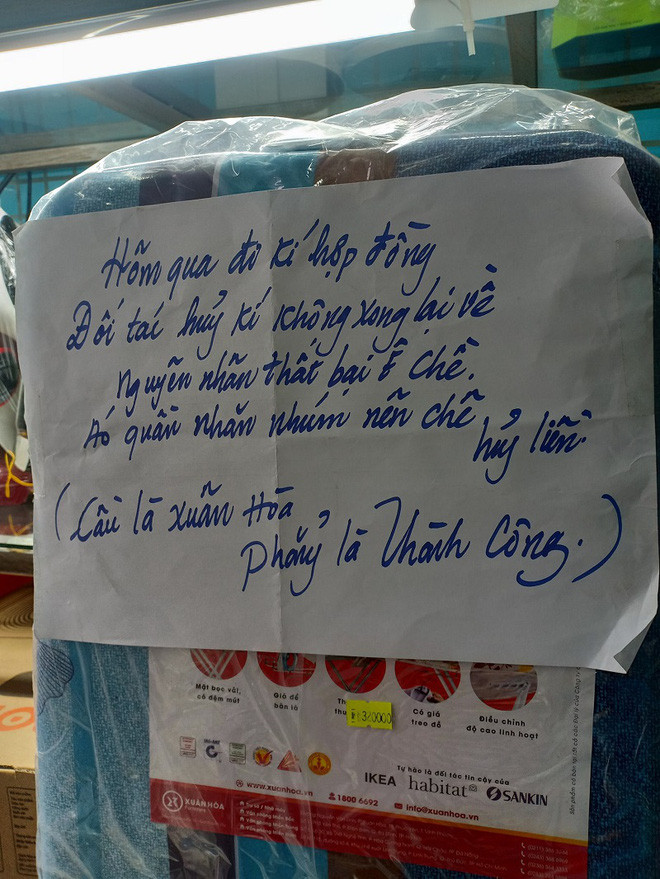 Hôm qua đi kí hợp đồng
Đối tác huỷ kí không xong lại về
Nguyên nhân thất bại ê chề.
Áo quần nhăn nhúm nên chê
huỷ liền.
(Cầu là Xuân Hòa
Phẳng là Thành Công.)
Mặt bọc vải,
có đệm mút
Giá để
bàn là
Có giá
treo đồ
Điều chỉnh
độ cao linh hoạt
380000
Tự hào là đối tác tin cậy của
IKEA habitat SANKIN
XUÂN HÒA
www.xuanhoa.vn
1800 6692
info@xuanhoa.vn